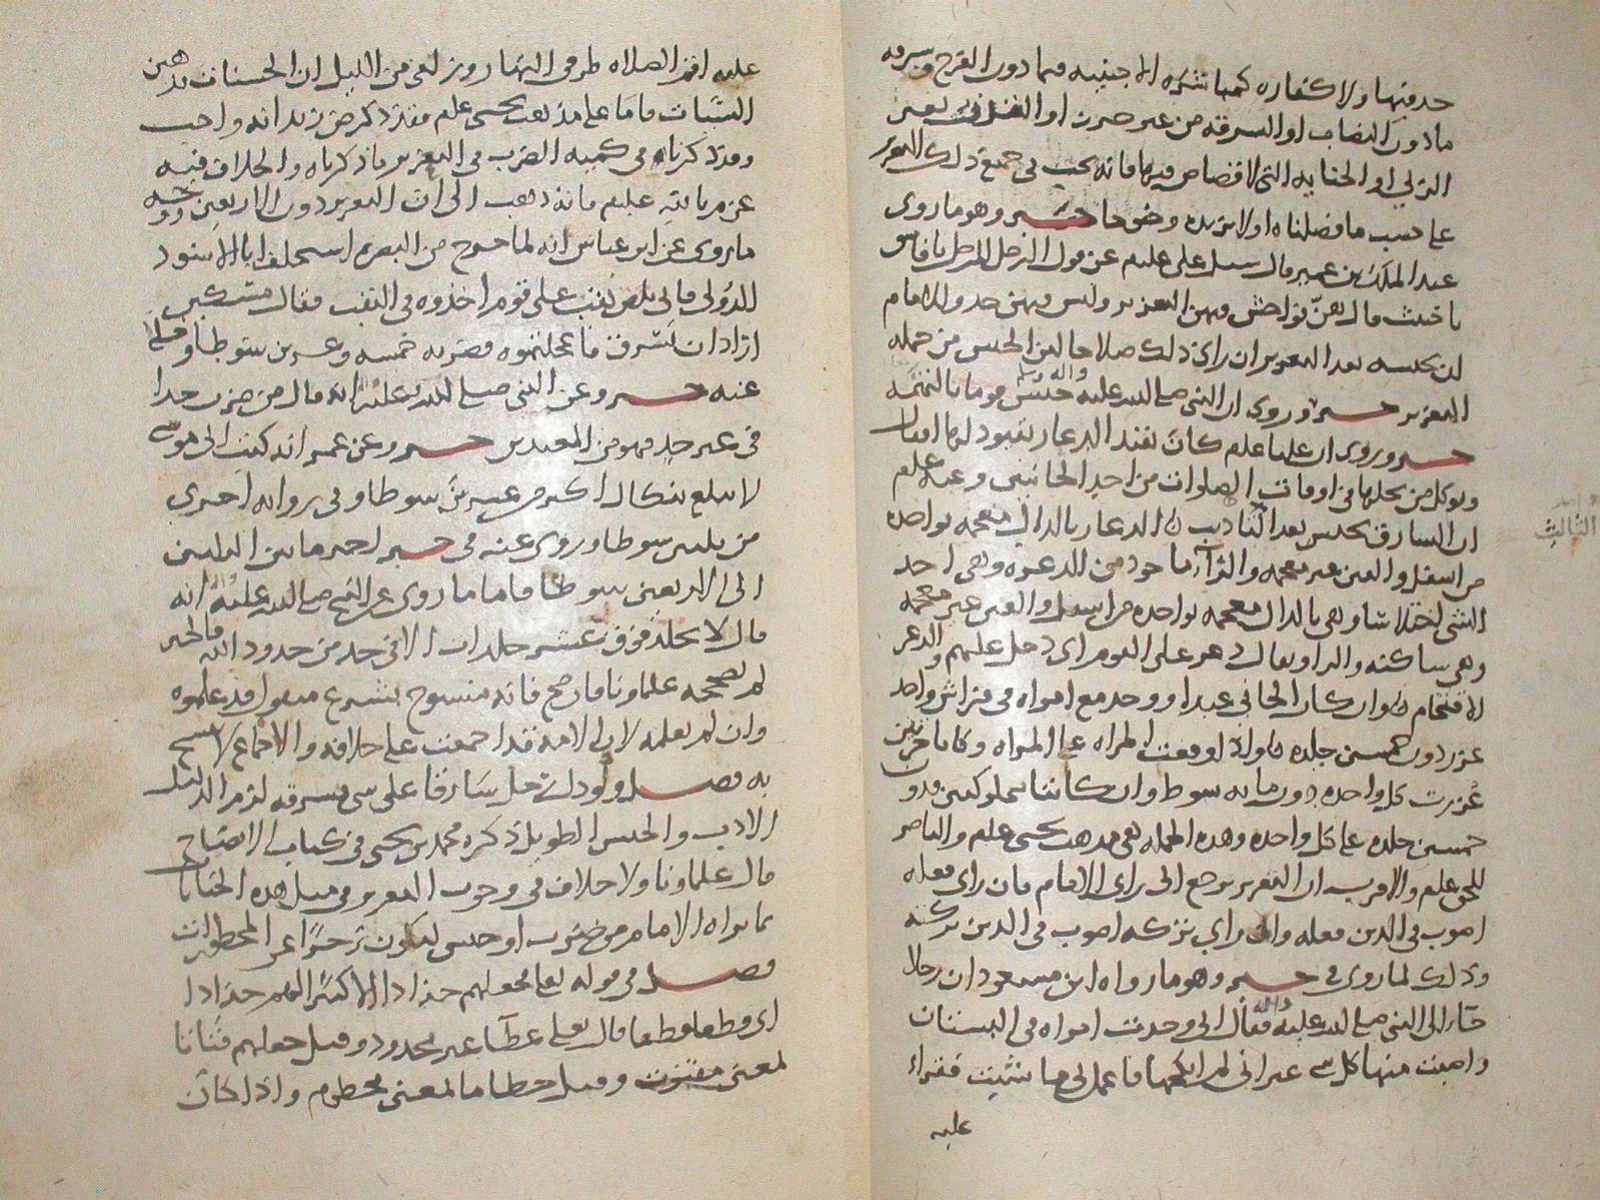 حد فيها ولا كفاره كمباشره الاجنبيه فيما دون الفرج وسرقه
ما دون النصاب او السرقه من غير حرز او القذف بغير
الزنى او الجنايه التى لا قصاص فيها فانه يجب فى جميع ذلك التعزير
على حسب ما فصلناه اولا يزيده وضوحا خبر وهو ما روى
عبد الملك بن عمير قال سئل على علىلم عن قول الرجل للرجل يا فاسق
يا خبيث قال هن فواحش فيهن التعزير وليس فيهن حد وللامام
ان يحبسه بعد التعزير ان راى ذلك صلاحا لان الحبس من جمله
التعزير خبر وروى ان النبى صلى الله عليه واله وسلم حبس قوما بالتهمه
خبر وروى ان عليا علىلم كان يقيد الدعار بقيود لها اقفال
ويوكل من يحلها فى اوقات الصلوات من احد الجانبين وعنه علىلم
ان السارق يحبس بعد التاديب الدعار بالدال معجمه بواحده
من اسفل والعين غير معجمه والراء ماخوذ من الدعره وهى اخذ
الشى اختلاسا وهى بالدال معجمه بواحده من اسفل والعين غير معجمه
وهى ساكنه والراء يقال دعر على القوم اى دخل عليهم والدعر
الاقتحام وان كان الجانى عبدا ووجد مع امراه فى فراش واحد
عزر دون خمسين جلده ولو وقعت المراه على المراه وكانتا حرتين
عزرت كل واحده دون مايه سوط وان كانتا مملوكتين فدون
خمسين جلده على كل واحده وهذه الجمله هى مذهب يحيى علىلم والناصر
للحق علىلم والاقرب ان التعزير يرجع الى راى الامام فان راى فعله
اصوب فى الدين فعله وان راى تركه اصوب فى الدين تركه
وذلك لما روى فى خبر وهو ما رواه ابن مسعود ان رجلا
جاء الى النبى صلى الله عليه واله فقال انى وجدت امراه فى البستان
واصبت منها كل شى غير انى لم انكحها فافعل بى ما شيت فقراء
عليه
الثالث
عليه اقم الصلاه طرفى النهار وزلفى من الليل ان الحسنات يذهبن
السيات فاما على مذهب يحيى علىلم فقد ذكر انه واجب
وقد ذكرناه فى كميه الضرب فى التعزير ما ذكرناه والخلاف فيه
عن علىلم فانه ذهب الى ان التعزير دون الاربعين ووجهه
ما روى عن ابن عباس انه لما خرج من البصره استخلف ابا الاسود
الدولى فاتى بلص نقب على قوم اخذوه فى النقب فقال مسكين
اراد ان يسرق فاعجلتموه فضربه خمسه وعشرين سوطا وخلى
عنه خبر وعن النبى صلى الله عليه انه قال من ضرب حدا
فى غير حد فهو من المعتدين خبر وعن عمر انه كتب الى ابى موسى
لا تبلغ بنكال اكثر من عشرين سوطا وفى روايه اخرى
من ثلثين سوطا وروى عنه فى خبر اخر ما بين الثلثين
الى الاربعين سوطا فاما ما روى عن النبى صلى الله عليه انه
قال لا يجلد فوق عشر جلدات الا فى حد من حدود الله فالخبر
لم يصححه علماونا فان صح فانه منسوخ بشرع منقول قد علموه
وان لم نعلمه لان الامه قد اجمعت على خلافه والاجماع لا ينسخ
به فصل ولو دل رجل سارقا على شى فسرقه لزم الدليل
الادب والحبس الطويل ذكره محمد بن يحيى فى كتاب الايضاح
قال علماونا ولا خلاف فى وجوب التعزير فى مثل هذه الجنايات
بما يراه الامام من ضرب او حبس ليكون زجرا عن المحظورات
فصل فى قوله تعالى فجعلهم جذاذا الا كبيرا لهم جذاذا
اى قطعا قطعا قال تعالى عطاء غير مجذوذ وقيل جعلهم فتاتا
لمعنى مفتوت وقيل حطاما لمعنى محطوم واذا كان